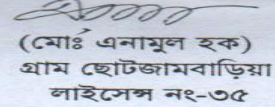 (মোঃ এনামুল হক)
গ্রাম ছোটজামবাড়িয়া
লাইসেন্স নং-৩৫